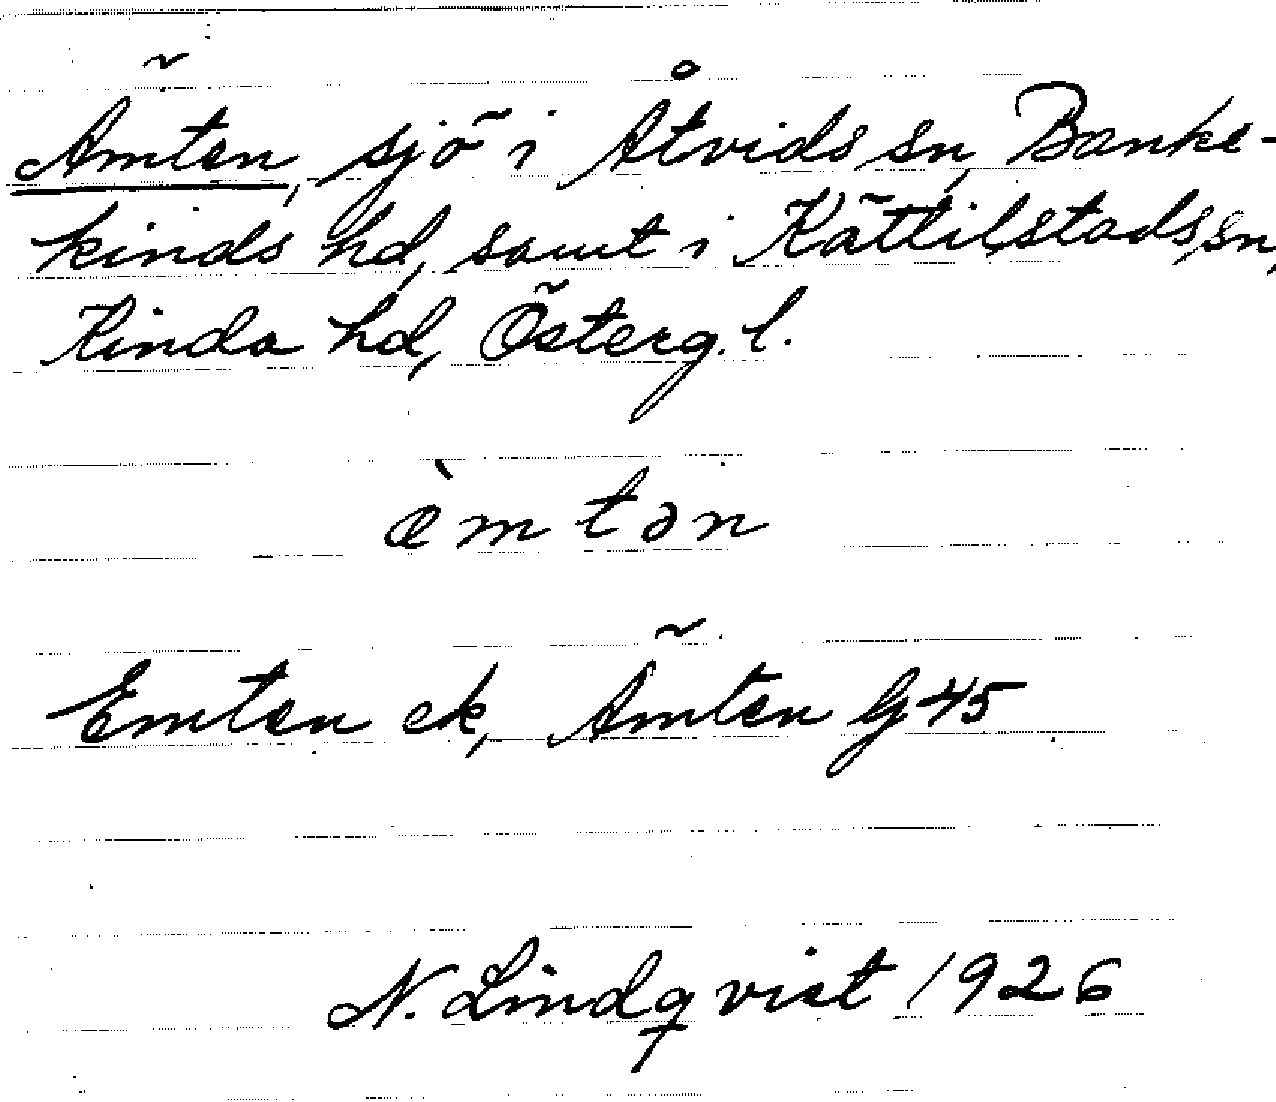 Ämten, sjö i Åtvids sn, Banke-
kinds hd, samt i Kättilstads sn,
Kinda hd, Österg. l.
èmtən
Emten ek, Ämten G45
N. Lindqvist 1926